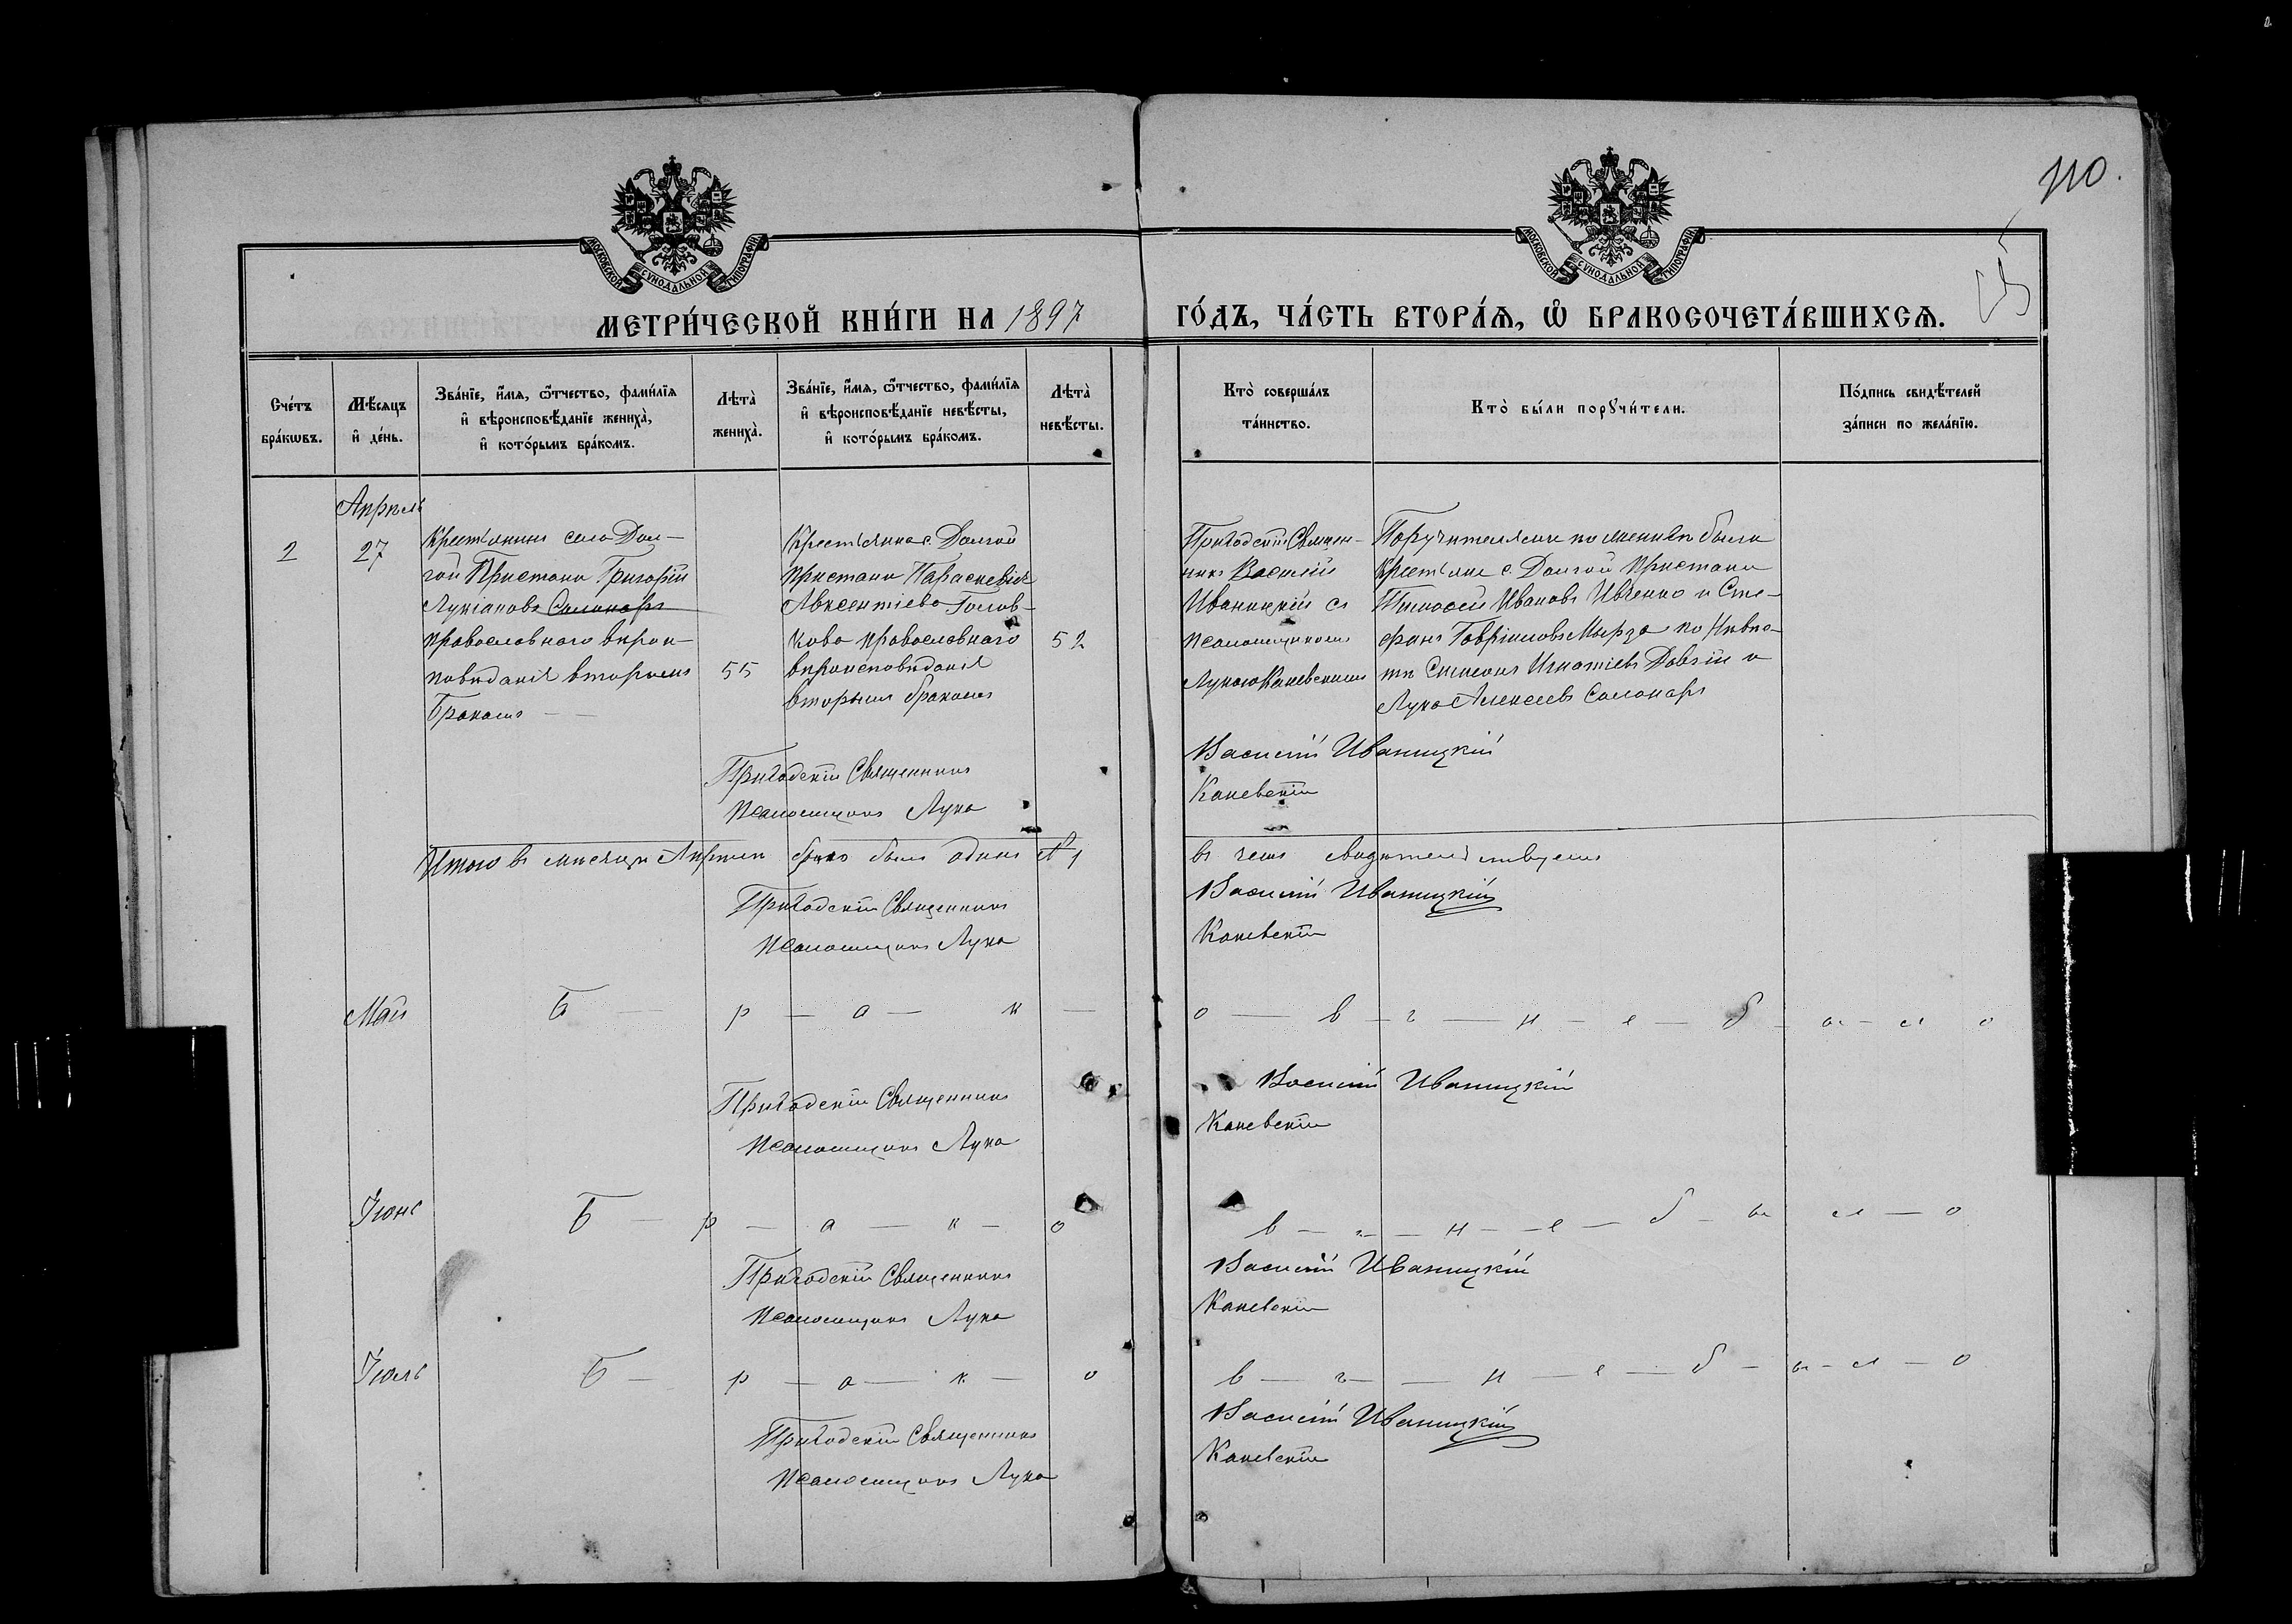 110.
МОСКОВСКОЙ СУНОДАЛЬНОЙ ТИПОГРАФІИ
МОСКОВСКОЙ СУНОДАЛЬНОЙ ТИПОГРАФІИ
МЕТРИ́ЧЕСКОЙ КНИ́ГИ НА 1897 ГО́ДЪ, ЧА́СТЬ ВТОРА́Ѧ, Ѽ БРАКОСОЧЕТА́ВШИХСѦ.
Сче́тъ бра́кѡвъ.
Мѣ́сѧцъ и҆ де́нь.
Зва́нїе, и҆́мѧ, ѻ҆́тчество, фами́лїѧ и҆ вѣроисповѣ́данїе жениха̀, и҆ кото́рымъ бра́комъ.
Лѣта̀ жениха̀.
Зва́нїе, и҆́мѧ, ѻ҆́тчество, фами́лїѧ и҆ вѣроисповѣ́данїе невѣ́сты, и҆ кото́рымъ бра́комъ.
Лѣта̀ невѣ́сты.
Кто̀ соверша́лъ та́инство.
Кто̀ бы́ли порꙋчи́тели.
По́дпись свидѣ́телей за́писи по жела́нїю.
Апрель
2
27
Крестьянинъ села Дол-
гой Пристани Григорій
Лукіановъ Солонарь
православнаго вѣрои-
повѣданія вторымъ
бракомъ —
55
Крестьянка с. Долгой
Пристани Параскевія
Авксентіева Голов-
кова православнаго
вѣроисповѣданія
вторымъ бракомъ
52
Приходскій Священ-
никъ Василій
Иваницкій съ
псаломщикомъ
Лукою Каневскимъ
Поручителями по женихѣ были
Крестьяне с. Долгой Пристани
Тимофей Ивановъ Ивченко и Сте-
фанъ Гавриловъ Мырза по Невѣс-
тѣ Симеонъ Игнатіевъ Довгій и
Лука Алексеевъ Солонарь
Приходскій Священникъ Василій Иваницкій
Псаломщикъ Лука Каневскій
Итого въ мѣсяцѣ Апрѣлѣ бракъ былъ одинъ № 1 въ чемъ свидѣтельствуемъ
Приходскій Священникъ Василій Иваницкій
Псаломщикъ Лука Каневскій
Май Б — р — а — к — о — в — ъ — н — е — б — ы — л — о
Приходскій Священникъ Василій Иваницкій
Псаломщикъ Лука Каневскій
Іюнь Б — р — а — к — о в — ъ — н — е — б — ы л — о
Приходскій Священникъ Василій Иваницкій
Псаломщикъ Лука Каневскій
Іюль Б — р — а — к — о в — ъ — н — е — б — ы — л — о
Приходскій Священникъ Василій Иваницкій
Псаломщикъ Лука Каневскій